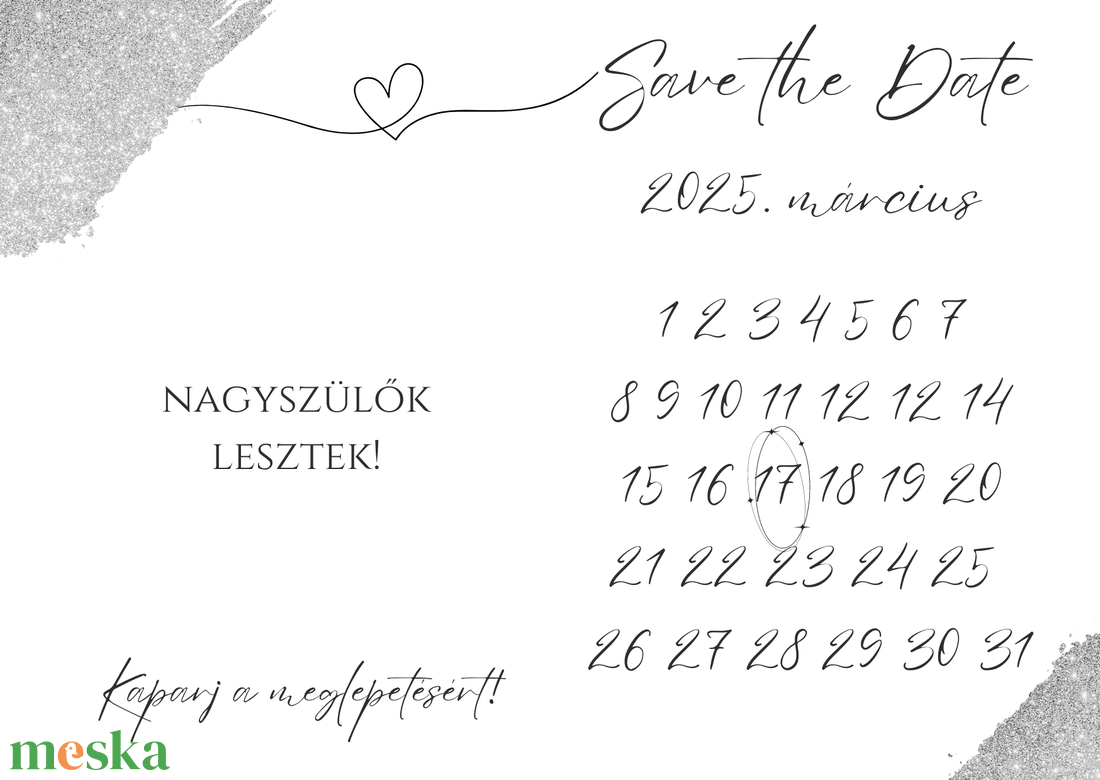 Save the Date
2025. március
1 2 3 4 5 6 7
8 9 10 11 12 12 14
15 16 17 18 19 20
21 22 23 24 25
26 27 28 29 30 31
NAGYSZÜLŐK
LESZTEK!
Kaparj a meglepetésért!
meska